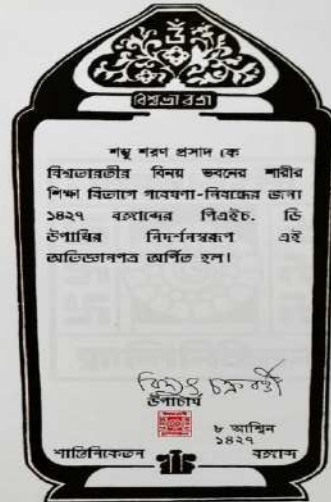 বিশ্বভারতী
শম্ভু শরণ প্রসাদ কে
বিশ্বভারতীর বিনয় ভবনের শারীর
শিক্ষা বিভাগে গবেষণা-নিবন্ধের জন্য
১৪২৭ বঙ্গাব্দের পিএইচ. ডি
উপাধির নিদর্শনস্বরূপ এই
অভিজ্ঞানপত্র অর্পিত হল।
বিদ্যুৎ চক্রবর্ত্তী
উপাচার্য
৮ আশ্বিন
১৪২৭
শান্তিনিকেতন বঙ্গাব্দ